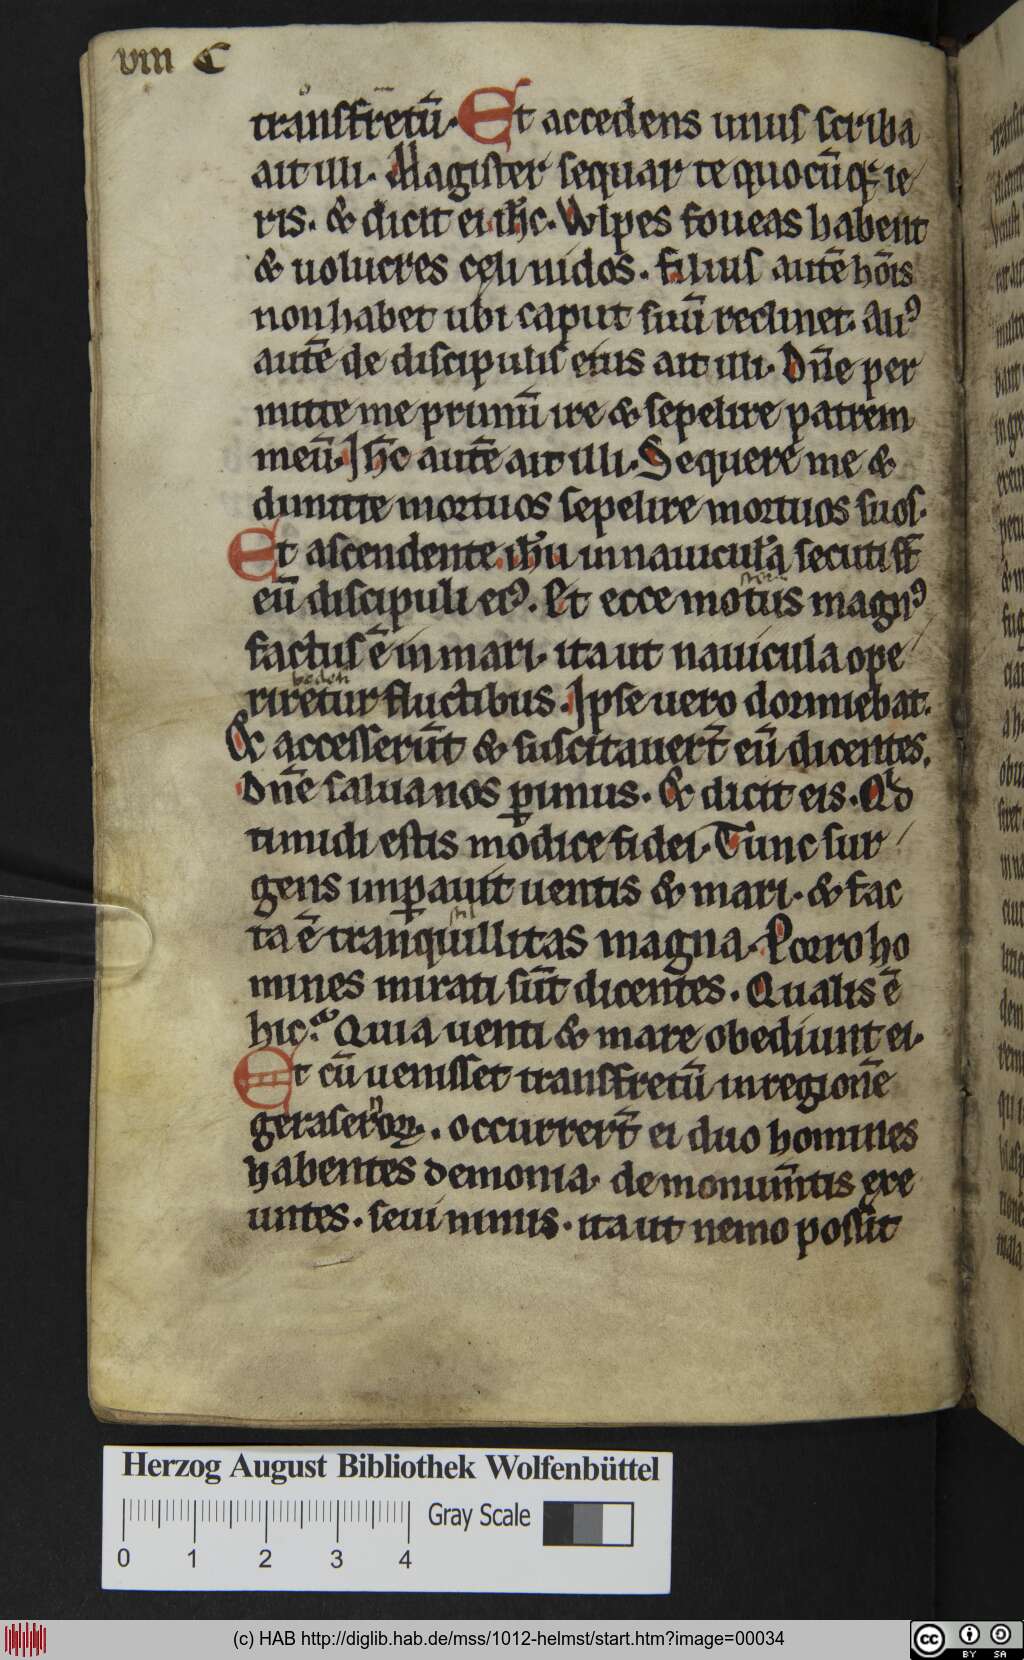 viii C
transfretū. Et accedens unus scriba
ait illi. Magister sequar te quocūq; ie
ris. & dicit ei ih̄c. Wlpes foueas habent
& uolucres cęli nidos. filius autē hōis
non habet ubi caput suū reclinet. Aliꝰ
autē de discipulis eius ait illi. Dn̄e per
mitte me primū ire & sepelire patrem
meū. Ih̄c autē ait illi. Sequere me &
dimitte mortuos sepelire mortuos suos.
Et ascendente ih̄u in nauicula secuti st̄
eū discipuli eiꝰ. Et ecce motus magnꝰ
factus ē in mari. ita ut nauicula ope
riretur fluctibus. Ipse uero dormiebat.
& accesserūt & suscitauert̄ eū dicentes.
Dn̄e salua nos ꝑimus. & dicit eis. Qd
timidi estis modice fidei. Tunc sur
gens imꝑauit uentis & mari. & fac
ta ē tranquillitas magna. Porro ho
mines mirati sūt dicentes. Qualis ē
hic? Quia uenti & mare obediunt ei.
Et cū uenisset transfretū in regionē
geraseꝛoꝝ. occurrert̄ ei duo homines
habentes demonia. de monum̄tis exe
untes. seui nimis. ita ut nemo possit
Herzog August Bibliothek Wolfenbüttel
Gray Scale
0 1 2 3 4
(c) HAB http://diglib.hab.de/mss/1012-helmst/start.htm?image=00034
cc BY SA